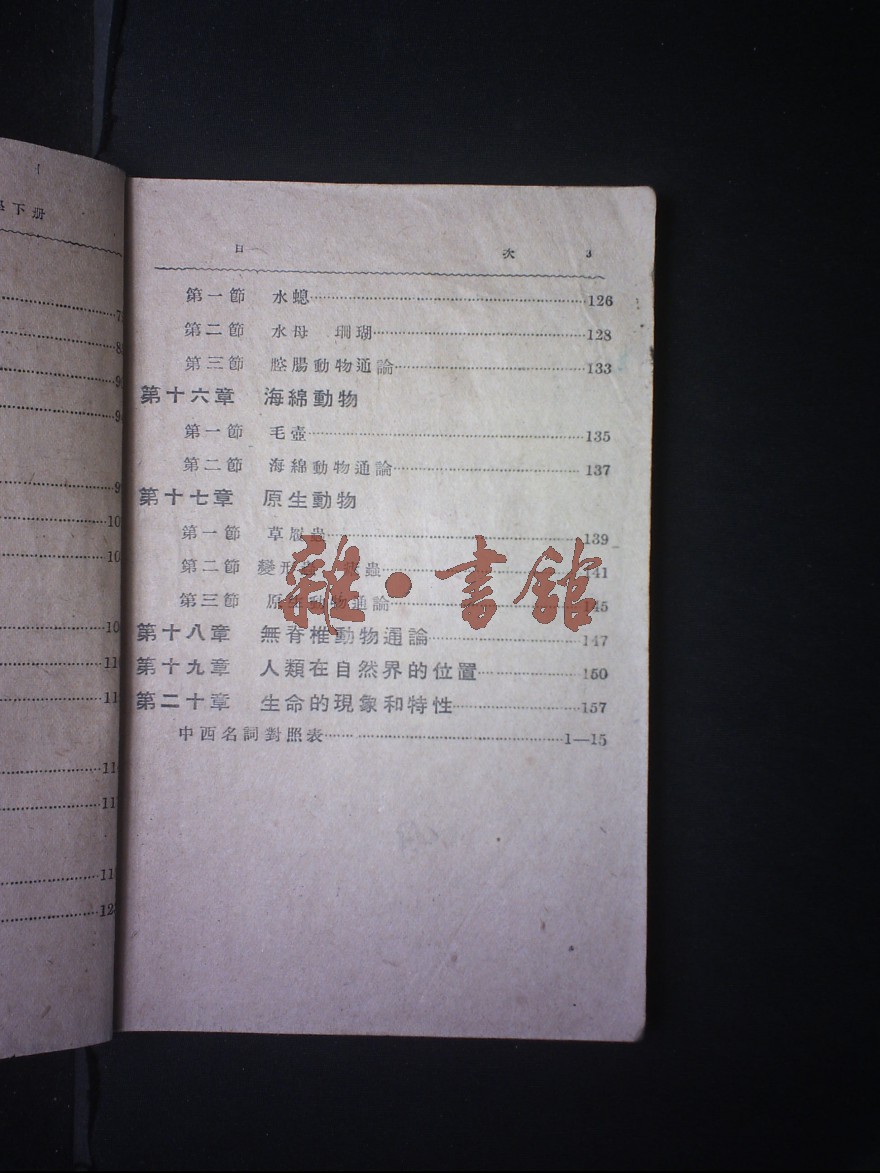 學下册
目 次 3
第一節 水螅 126
第二節 水母 珊瑚 128
第三節 腔腸動物通論 133
第十六章 海綿動物
第一節 毛壺 135
第二節 海綿動物通論 137
第十七章 原生動物
第一節 草履蟲 139
第二節 變形蟲 蟲 141
第三節 原生動物通論 145
第十八章 無脊椎動物通論 147
第十九章 人類在自然界的位置 150
第二十章 生命的現象和特性 157
中西名詞對照表 1—15
雜·書館